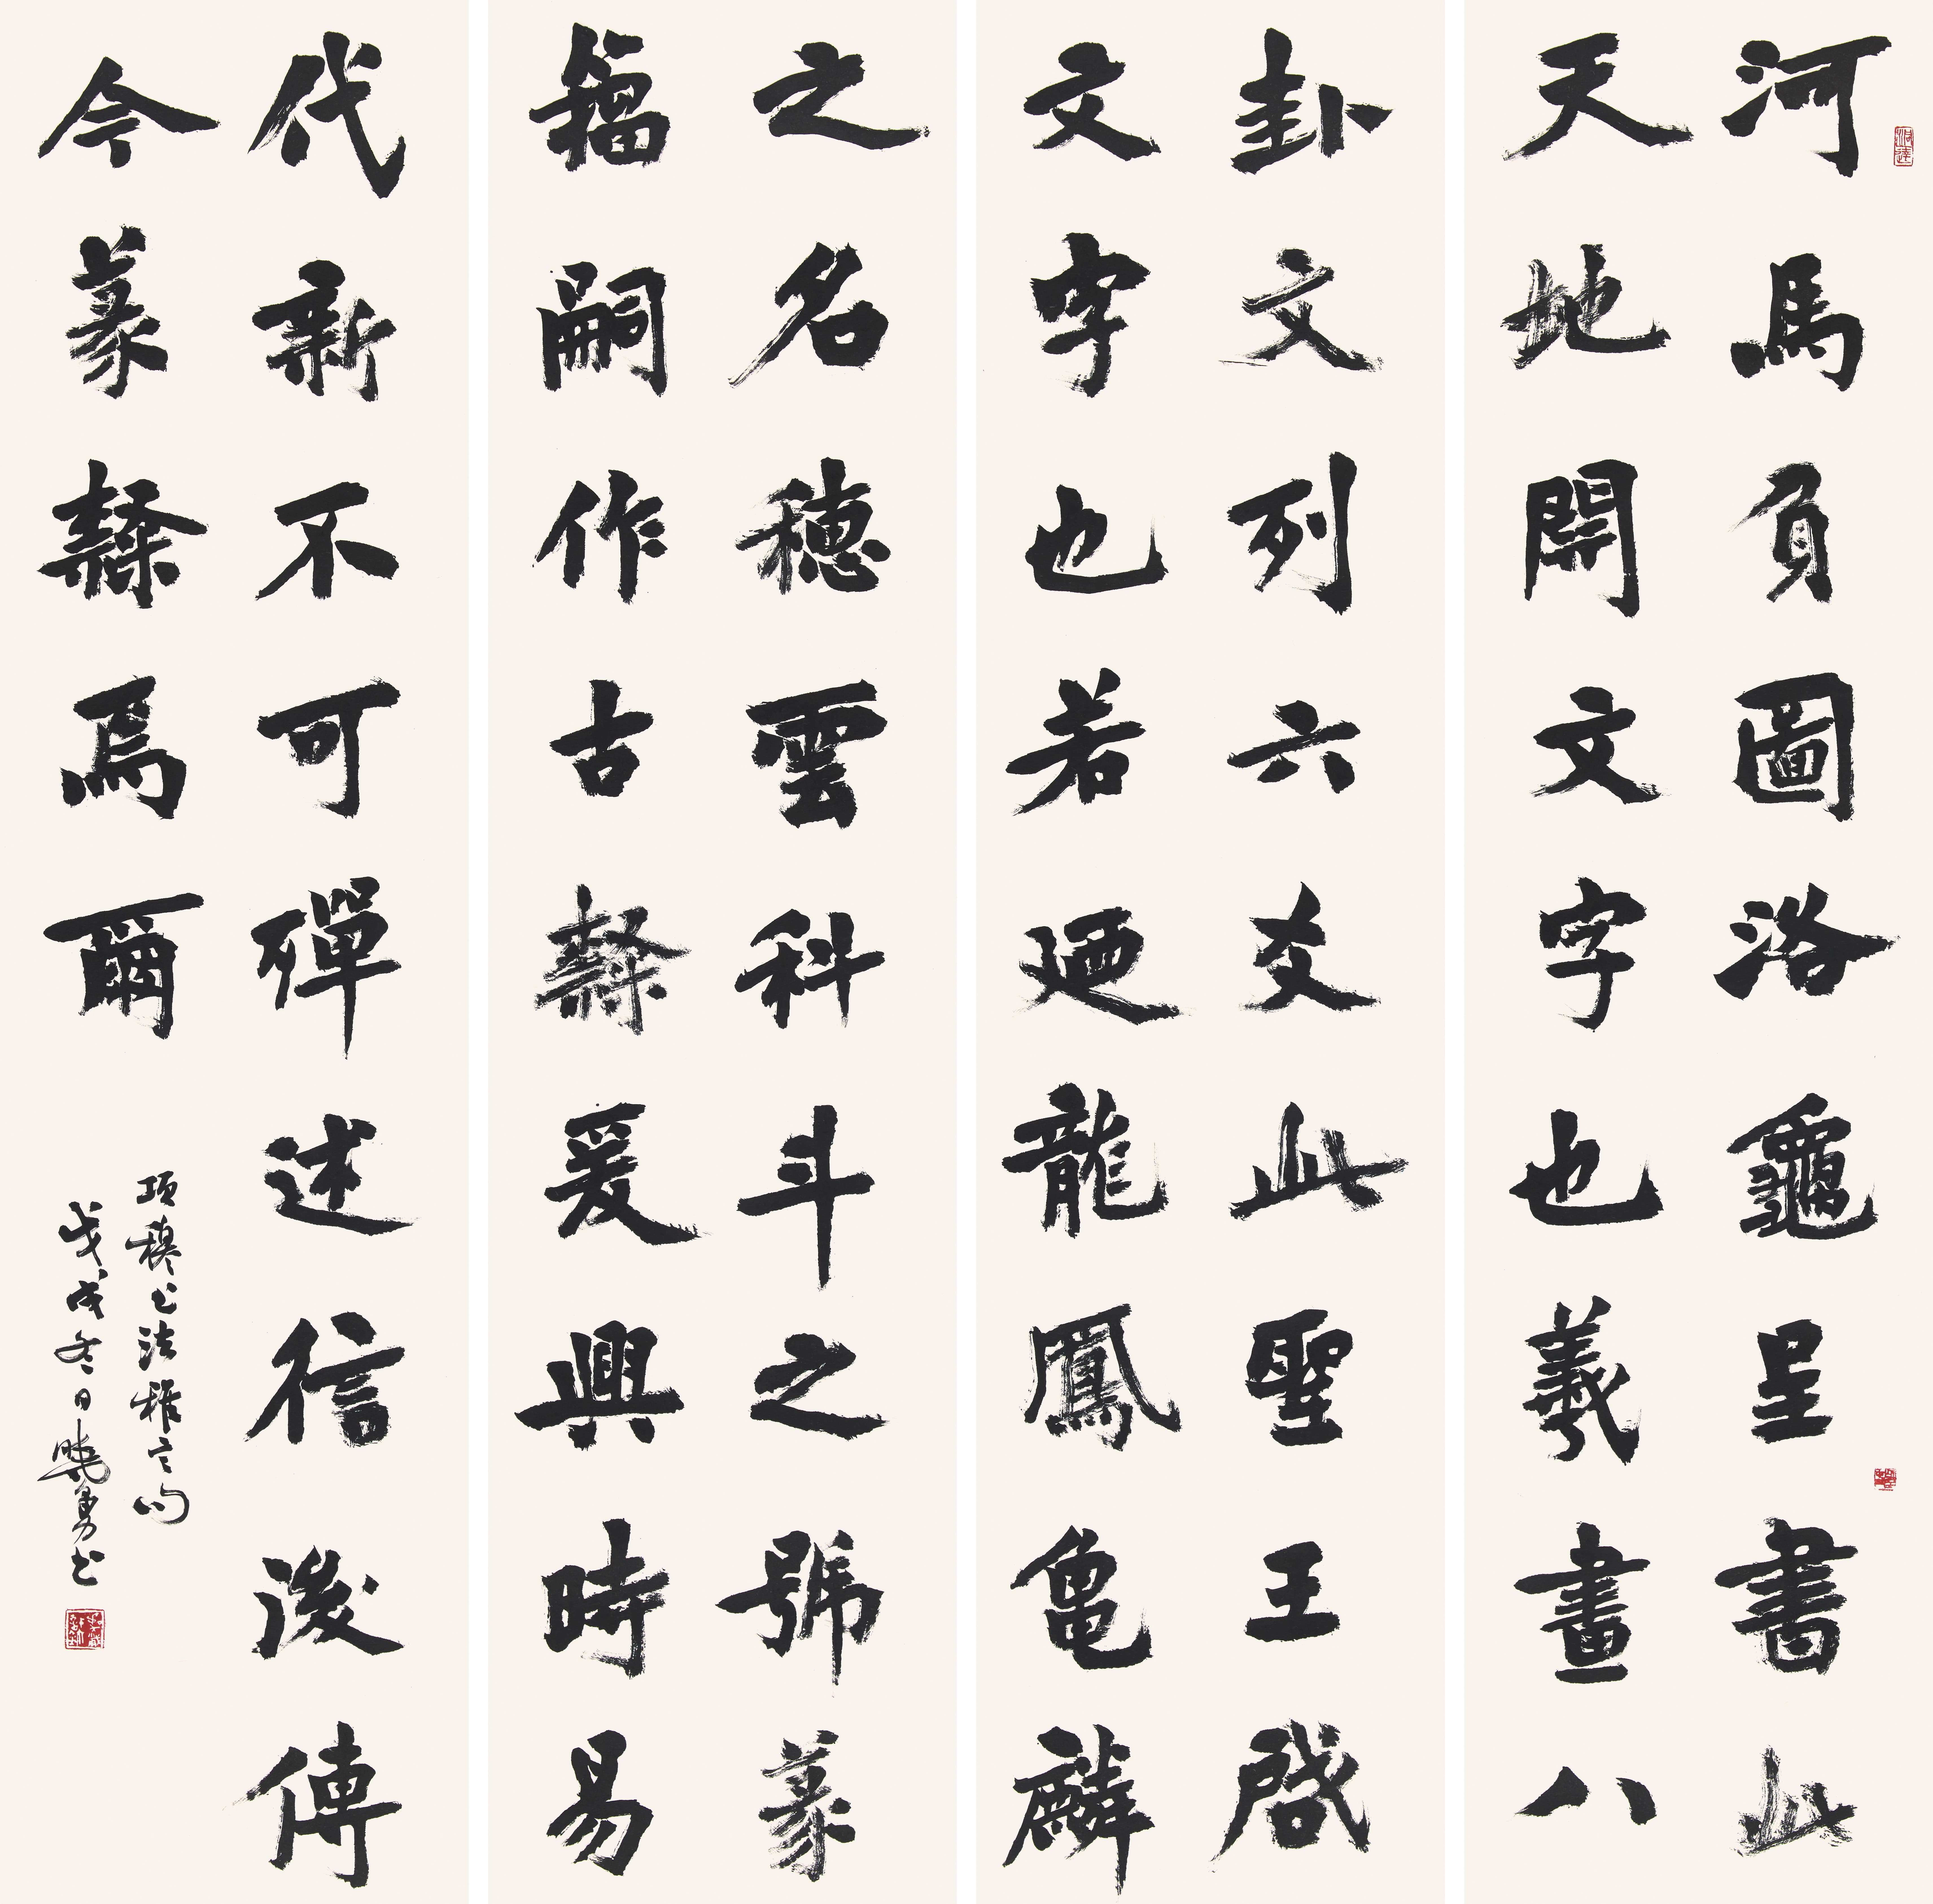 河馬負圖洛龜呈書此
天地開文字也羲畫八
卦文列六爻此聖王啓
文字也若廼龍鳳亀麟
之名穗雲科斗之號篆
籀嗣作古隸爰興時易
代新不可殫述信後傳
今篆隸焉爾
項穆书法雅言句
戊戌冬日曉勇书